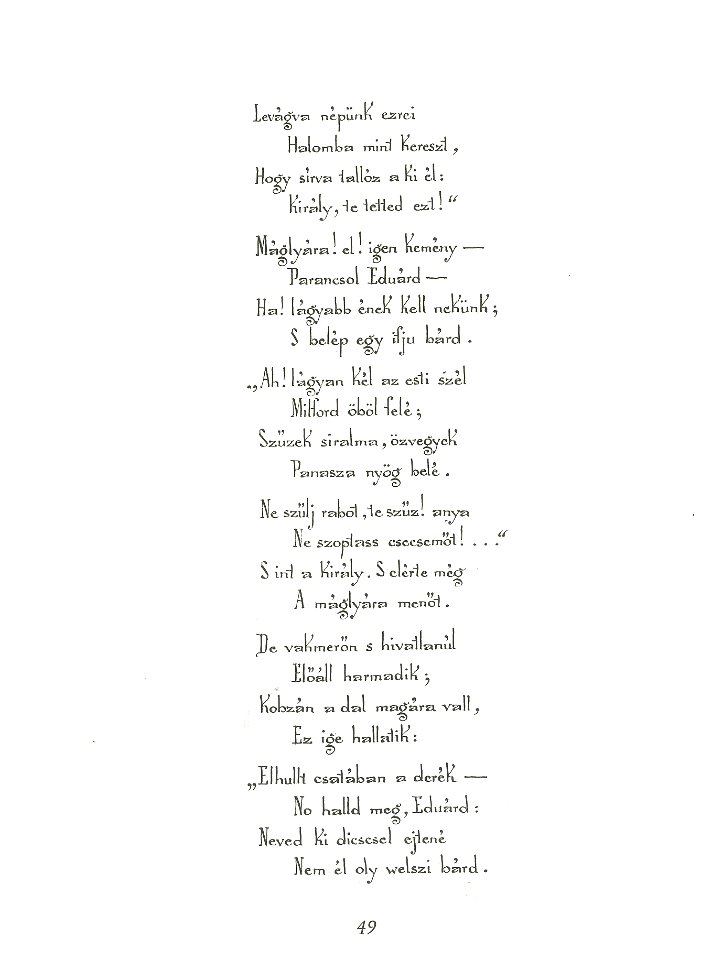 Levágva népünk ezrei
Halomba mint kereszt,
Hogy sírva tallóz a ki él:
Király, te tetted ezt!“
Máglyára! el! igen kemény —
Parancsol Eduárd —
Ha! lágyabb ének kell nekünk;
S belép egy ifju bárd.
„Ah! lágyan kél az esti szél
Milford öböl felé;
Szüzek siralma, özvegyek
Panasza nyög belé.
Ne szülj rabot, te szűz! anya
Ne szoptass csecsemőt! . . .“
S int a király. S elérte még
A máglyára menőt.
De vakmerőn s hivatlanúl
Előáll harmadik;
Kobzán a dal magára vall,
Ez ige hallatik:
„Elhullt csatában a derék —
No halld meg, Eduárd:
Neved ki diccsel ejtené
Nem él oly welszi bárd.
49